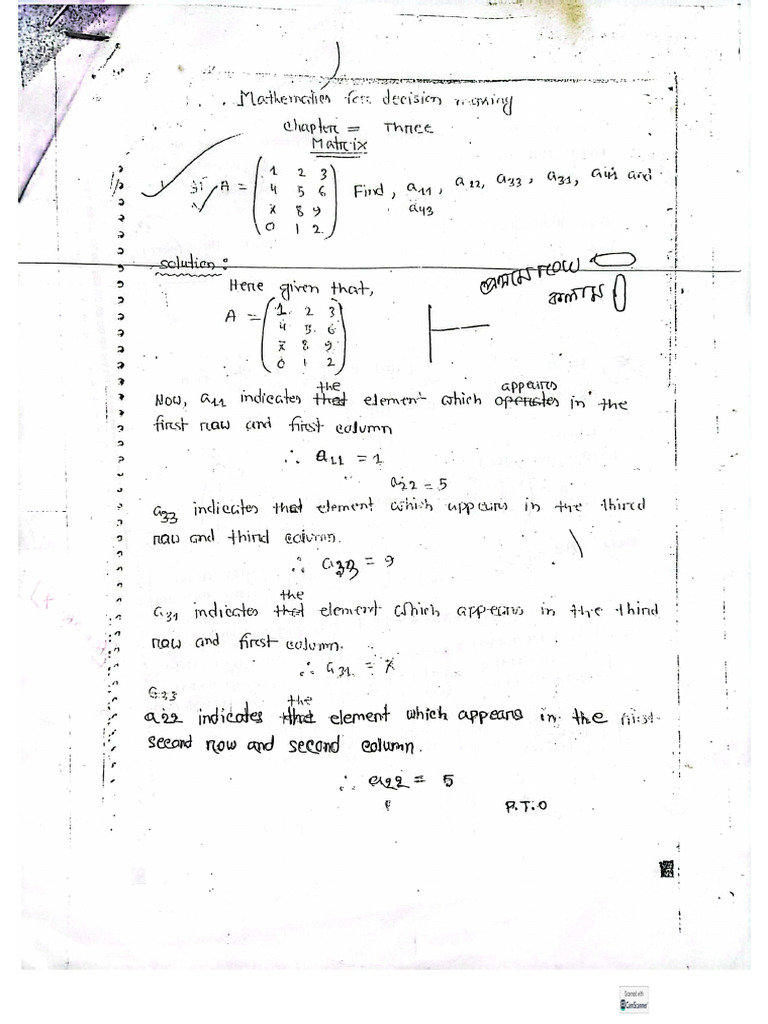 Mathematics for decision making
Chapter = Three
Matrix
A = (1 2 3
4 5 6
x 8 9
0 1 2) Find, a11, a22, a33, a31, a41 and
a43
solution:
row
কলাম
Here given that,
A = (1 2 3
4 5 6
x 8 9
0 1 2)
Now, a11 indicates that the element which operates appears in the
first raw and first column
∴ a11 = 1
a22 = 5
a33 indicates that element which appears in the third
raw and third column.
∴ a33 = 9
a31 indicates that the element which appears in the third
raw and first column.
∴ a31 = x
G33
a22 indicates that the element which appears in the first
second row and second column.
∴ a22 = 5
P.T.O
Scanned with
CamScanner